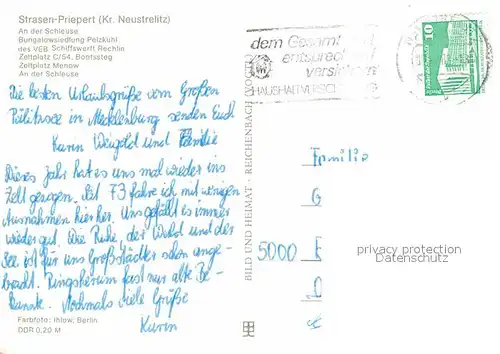 Strasen-Priepert (Kr. Neustrelitz)
An der Schleuse
Bungalowsiedlung Pelzkuhl
des VEB Schiffswerft Rechlin
Zeltplatz C/54, Bootssteg
Zeltplatz Menow
An der Schleuse
Die besten Urlaubsgrüße vom Großen
in Mecklenburg senden Euch
Karin und Familie
Dieses Jahr hat es uns mal wieder ins
Zelt gezogen. Seit 73 fahre ich mit wenigen
Ausnahmen hierher. Uns gefällt es immer
wieder gut. Die Ruhe, der Wald und der
See ist für uns Großstädter schon ange-
bracht. Ringsherum fast nur alte Be-
kannte. Nochmals viele Grüße
Karin
Farbfoto: Ihlow, Berlin
DDR 0,20 M
BILD UND HEIMAT · REICHENBACH
dem Gesamt
entsprech
versichern
HAUSHALTVERSICH G
10
Familie
G
5000 E
privacy protection
Datenschutz